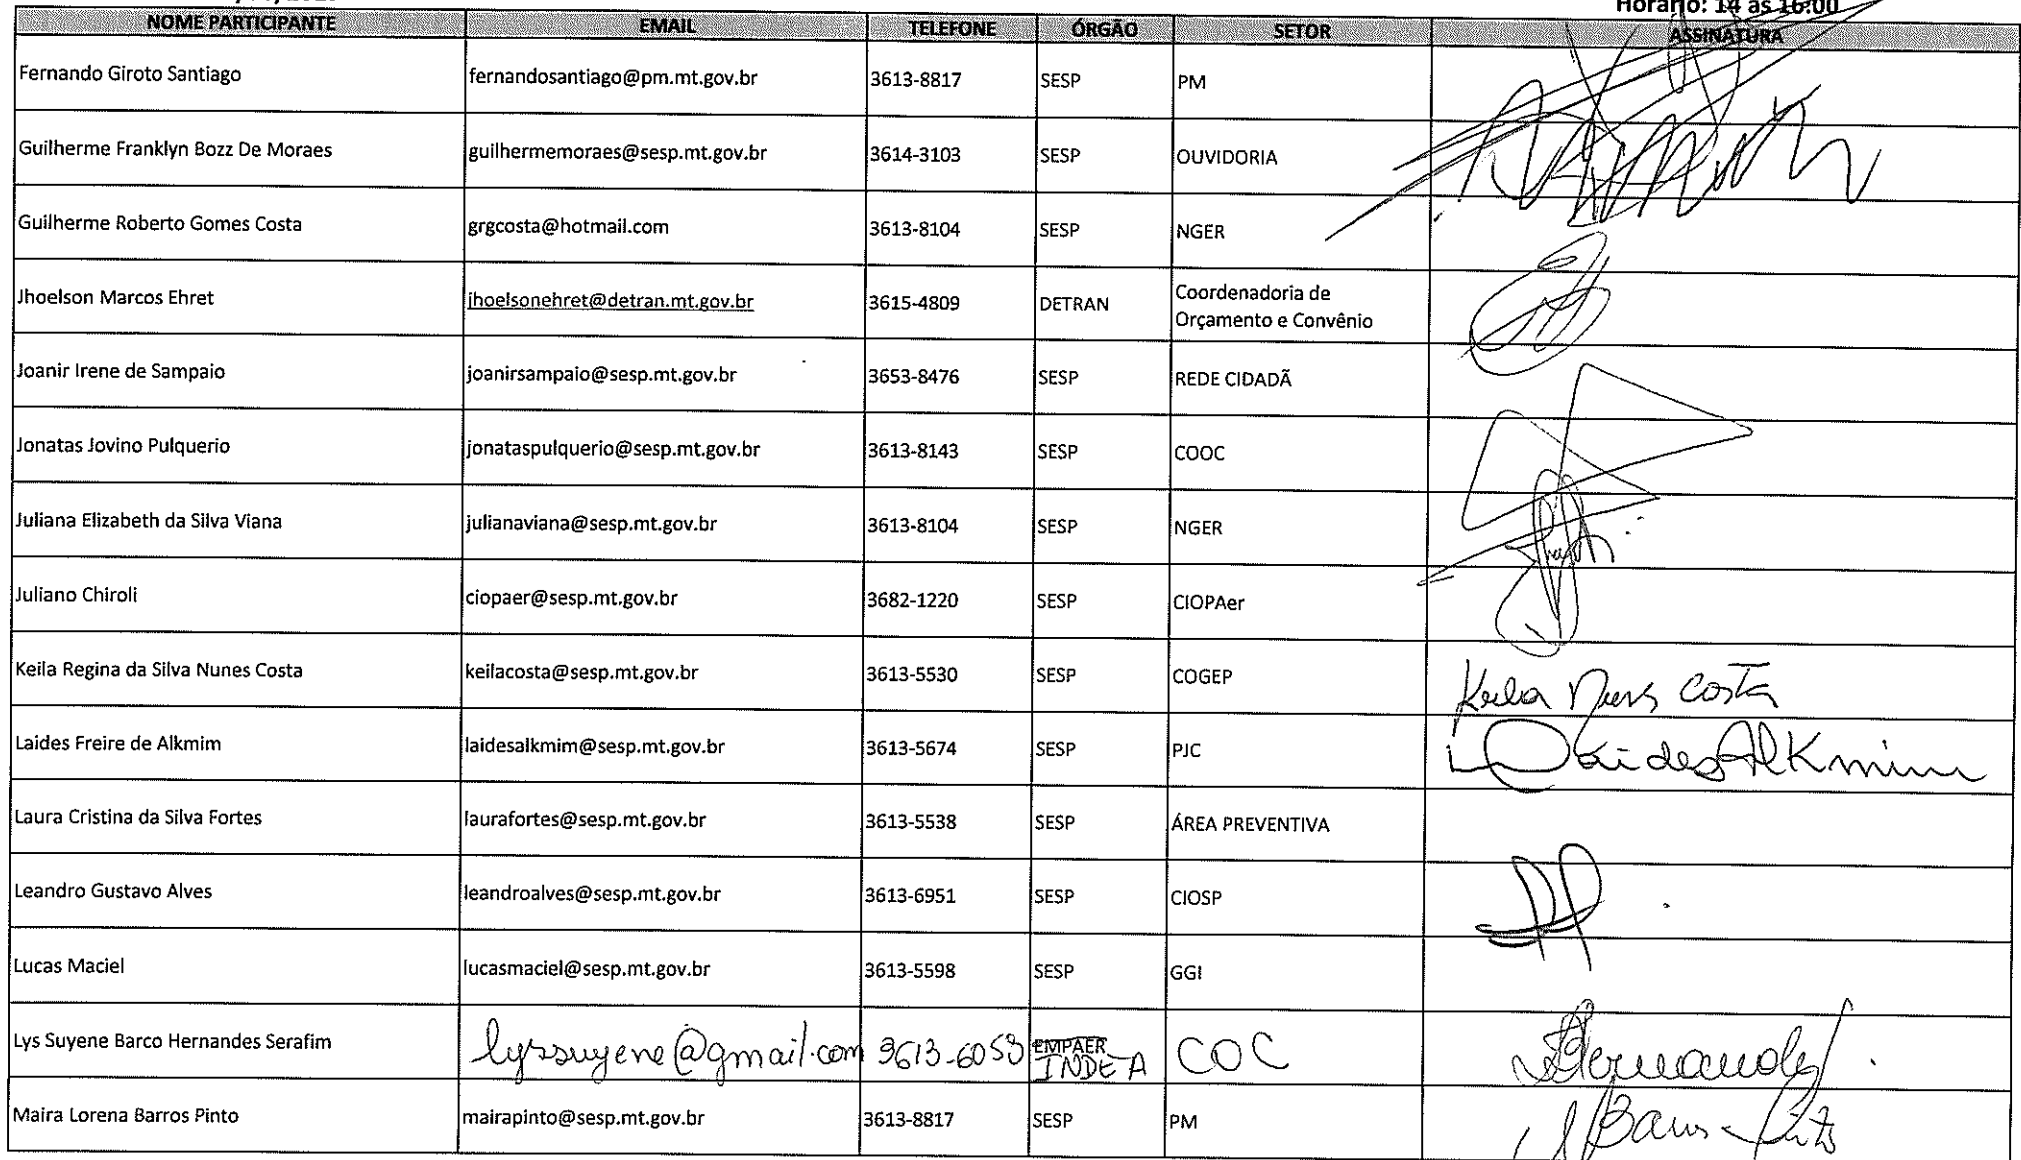 Horário: 14 às 16:00
NOME PARTICIPANTE EMAIL TELEFONE ÓRGÃO SETOR ASSINATURA
Fernando Giroto Santiago fernandosantiago@pm.mt.gov.br 3613-8817 SESP PM
Guilherme Franklyn Bozz De Moraes guilhermemoraes@sesp.mt.gov.br 3614-3103 SESP OUVIDORIA
Guilherme Roberto Gomes Costa grgcosta@hotmail.com 3613-8104 SESP NGER
Jhoelson Marcos Ehret jhoelsonehret@detran.mt.gov.br 3615-4809 DETRAN Coordenadoria de
Orçamento e Convênio
Joanir Irene de Sampaio joanirsampaio@sesp.mt.gov.br 3653-8476 SESP REDE CIDADÃ
Jonatas Jovino Pulquerio jonataspulquerio@sesp.mt.gov.br 3613-8143 SESP COOC
Juliana Elizabeth da Silva Viana julianaviana@sesp.mt.gov.br 3613-8104 SESP NGER
Juliano Chiroli ciopaer@sesp.mt.gov.br 3682-1220 SESP CIOPAer
Keila Regina da Silva Nunes Costa keilacosta@sesp.mt.gov.br 3613-5530 SESP COGEP Keila Nunes Costa
Laides Freire de Alkmim laidesalkmim@sesp.mt.gov.br 3613-5674 SESP PJC Laides Alkmim
Laura Cristina da Silva Fortes laurafortes@sesp.mt.gov.br 3613-5538 SESP ÁREA PREVENTIVA
Leandro Gustavo Alves leandroalves@sesp.mt.gov.br 3613-6951 SESP CIOSP
Lucas Maciel lucasmaciel@sesp.mt.gov.br 3613-5598 SESP GGI
Lys Suyene Barco Hernandes Serafim lyssuyene@gmail.com 3613-6053 EMPAER COC Hernandes
INDEA
Maira Lorena Barros Pinto mairapinto@sesp.mt.gov.br 3613-8817 SESP PM Barros Pinto